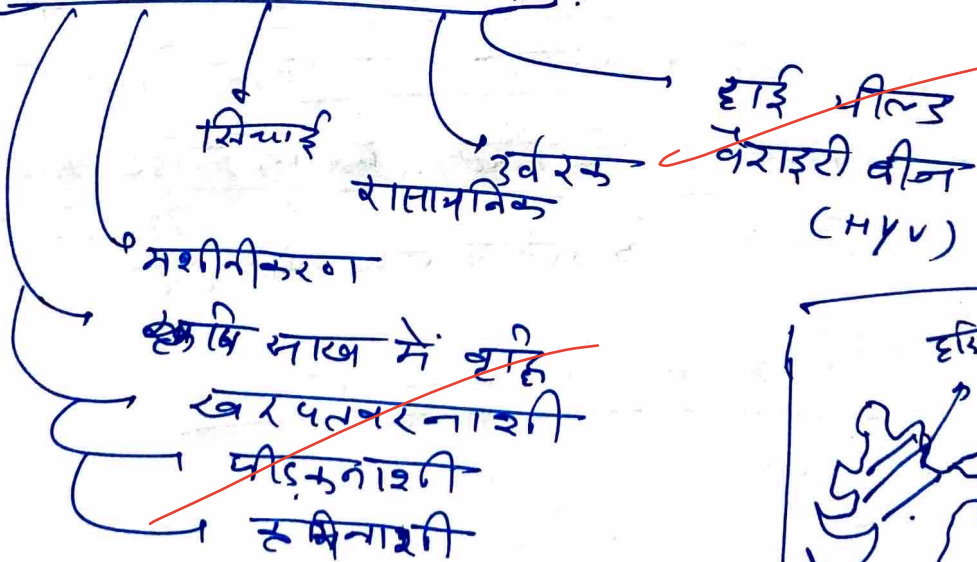 हाई यील्ड
वैराइटी बीज
(HYV)
सिचाई
उर्वरक
रासायनिक
मशीनीकरण
कृषि साख में वृद्धि
खरपतवारनाशी
पीड़कनाशी
कृमिनाशी
हरि